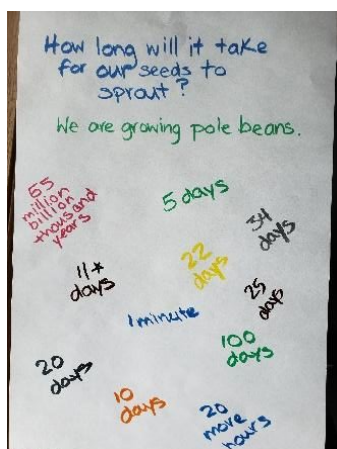 How long will it take
for our seeds to
sprout?
We are growing pole beans.
65
million
billion
thousand
years
5 days
34
days
11*
days
22
days
25
days
1 minute
100
days
20
days
10
days
20
more
hours